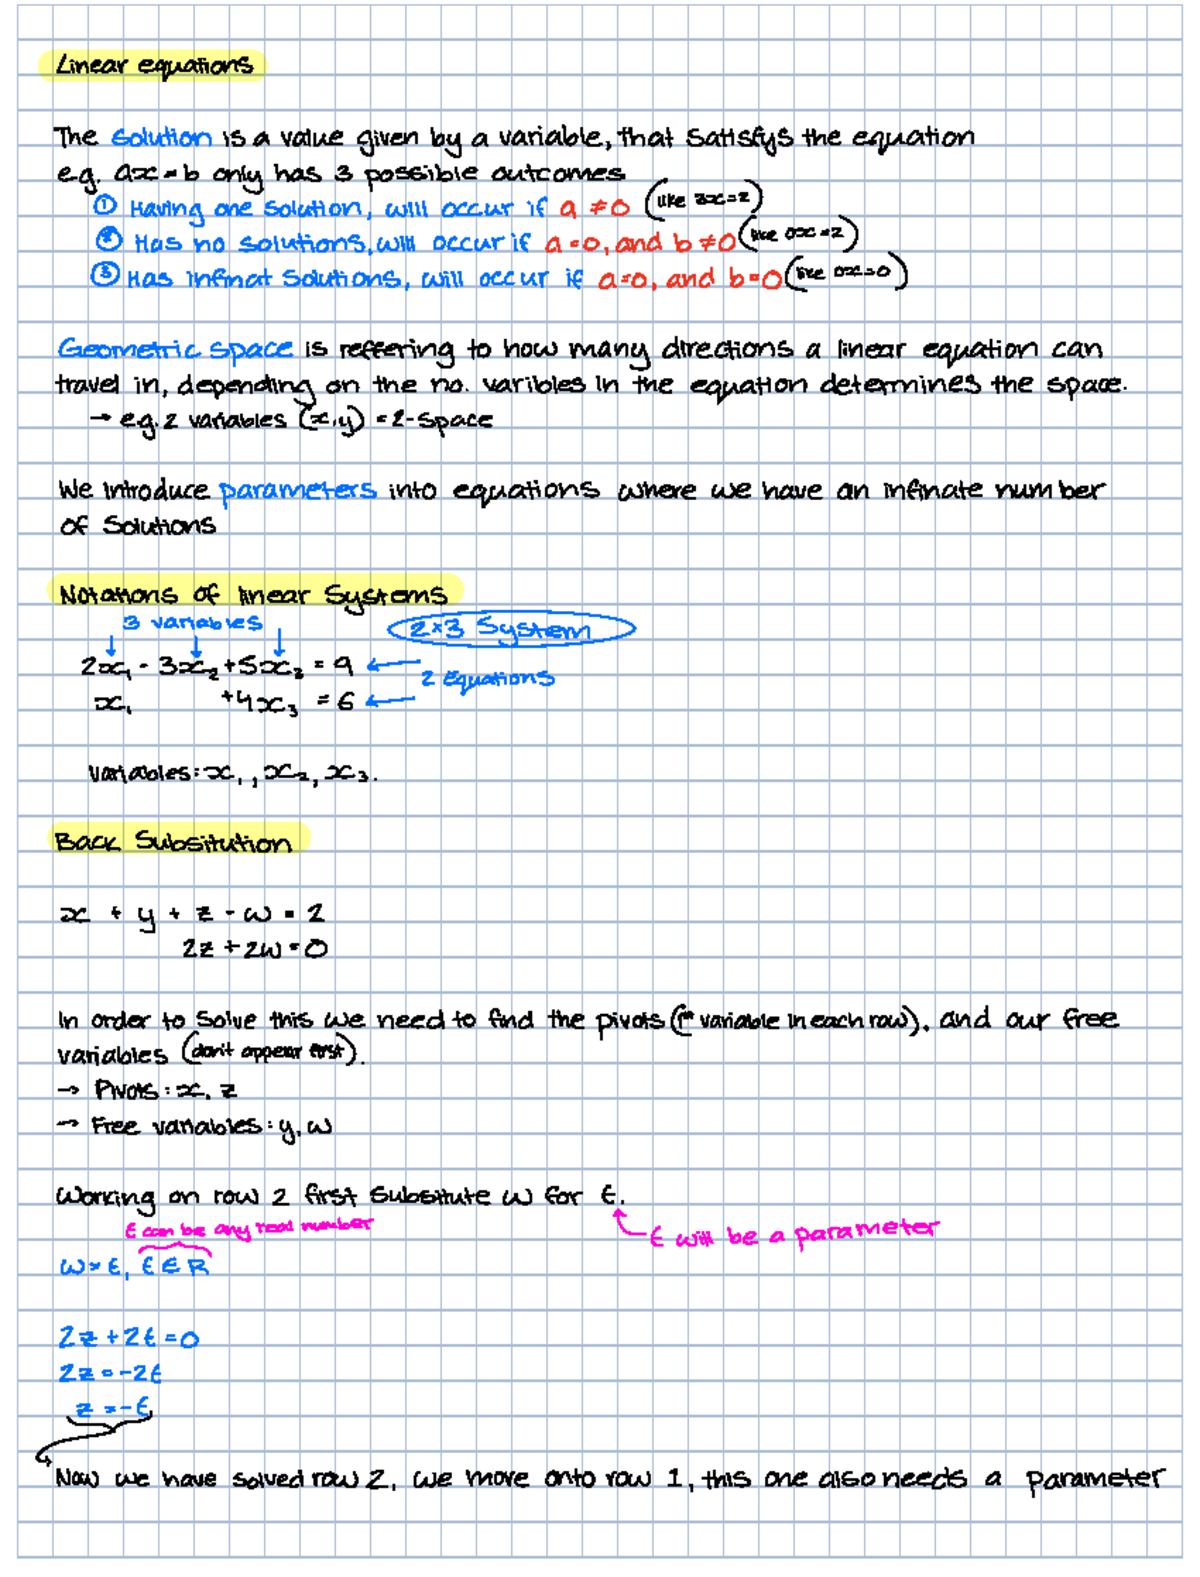 Linear equations
The solution is a value given by a variable, that satisfys the equation
e.g. ax = b only has 3 possible outcomes
① Having one solution, will occur if a ≠ 0 (like 3x=2)
② Has no solutions, will occur if a = 0, and b ≠ 0 (like 0x=2)
③ Has infinat solutions, will occur if a=0, and b=0 (like 0x=0)
Geometric space is reffering to how many directions a linear equation can
travel in, depending on the no. varibles in the equation determines the space.
→ e.g. 2 variables (x,y) = 2-space
We introduce parameters into equations where we have an infinate number
of solutions
Notations of linear Systems
3 variables
2×3 System
2x₁ - 3x₂ + 5x₃ = 9
2 Equations
x₁ + 4x₃ = 6
variables: x₁, x₂, x₃.
Back Subsitution
x + y + z - w = 2
2z + 2w = 0
In order to solve this we need to find the pivots (1st variable in each row), and our free
variables (don't appear first).
→ Pivots: x, z
→ Free variables: y, w
Working on row 2 first subsitute w for t.
t can be any real number
t will be a parameter
w = t, t ∈ R
2z + 2t = 0
2z = -2t
z = -t
Now we have solved row 2, we move onto row 1, this one also needs a parameter